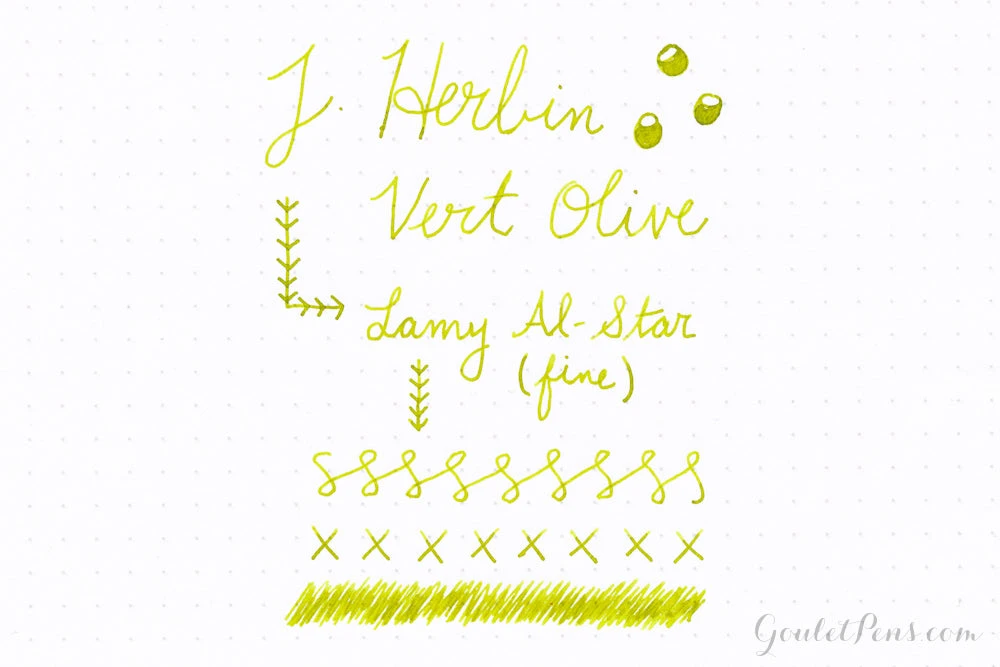 J. Herbin
Vert Olive
Lamy Al-Star
(fine)
S S S S S S S S S
X X X X X X X X
GouletPens.com